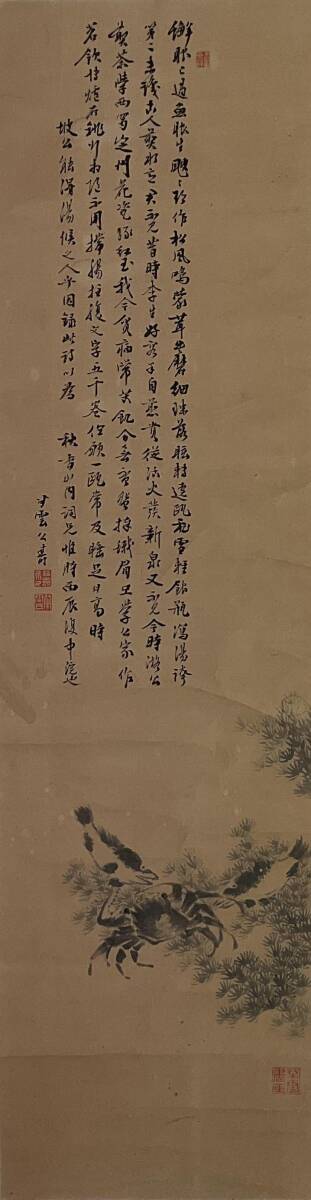 蟹眼已過魚眼生颼颼欲作松風鳴蒙茸出磨細珠落眩轉遶甌飛雪輕銀瓶瀉湯誇
第二未識古人煎水意君不見昔時李生好客手自煎貴從活火發新泉又不見今時潞公
煎茶學西蜀定州花瓷琢紅玉我今貧病常苦飢分無玉盌捧蛾眉且學公家作
茗飲塼爐石銚行相隨不用撐腸拄腹文字五千卷但願一甌常及睡足日高時
坡公能得湯候之人也因錄此詩以為 秋 山 詞兄 時丙辰 中澣
雲公壽